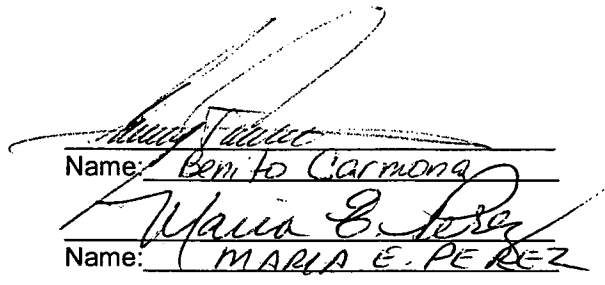 Name: Benito Carmona
Maria E. Perez
Name: MARIA E. PEREZ